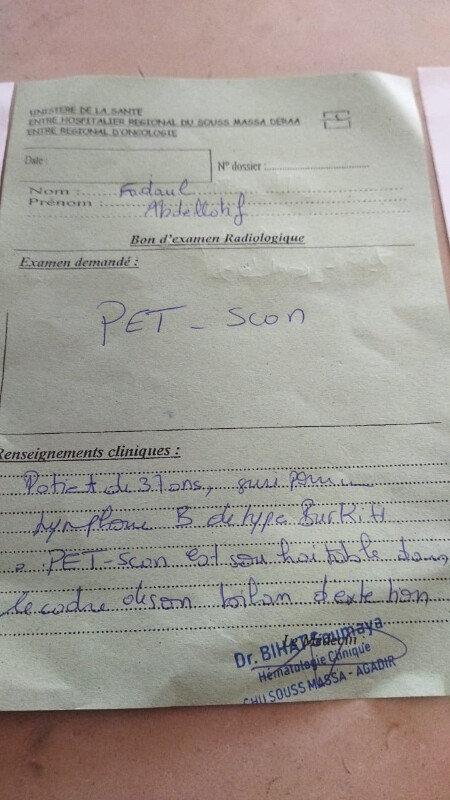 MINISTERE DE LA SANTE
ENTRE HOSPITALIER REGIONAL DU SOUSS MASSA DERAA
ENTRE REGIONAL D'ONCOLOGIE
Date :
N° dossier :
Nom : Fadaul
Prénom : Abdellatif
Bon d'examen Radiologique
Examen demandé :
PET - Scan
Renseignements cliniques :
Patient de 37 ans, suivi pour
Lymphome B de type Burkitt
PET-Scan est souhaitable dans
le cadre de son bilan d'extension
Le Médecin :
Dr. BIHAT Soumaya
Hématologie Clinique
CHU SOUSS MASSA - AGADIR